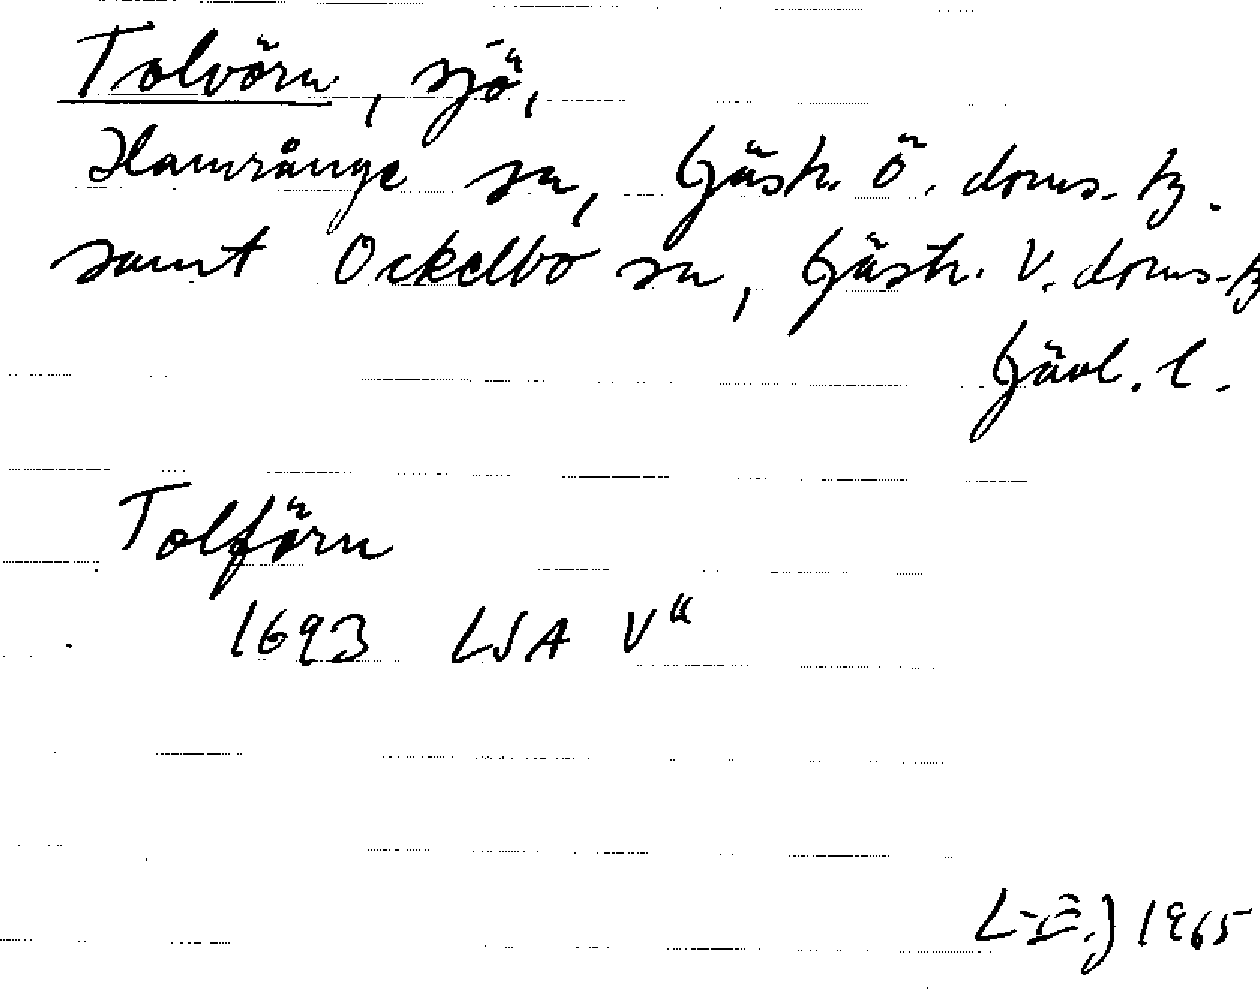 Tolvörn, sjö,
Hamrånge sn, Gästr. Ö. doms. tg.
samt Ockelbo sn, Gästr. V. doms. tg
Gävl. l.
Tolförn
1693 LSA V"
L-E.J 1965